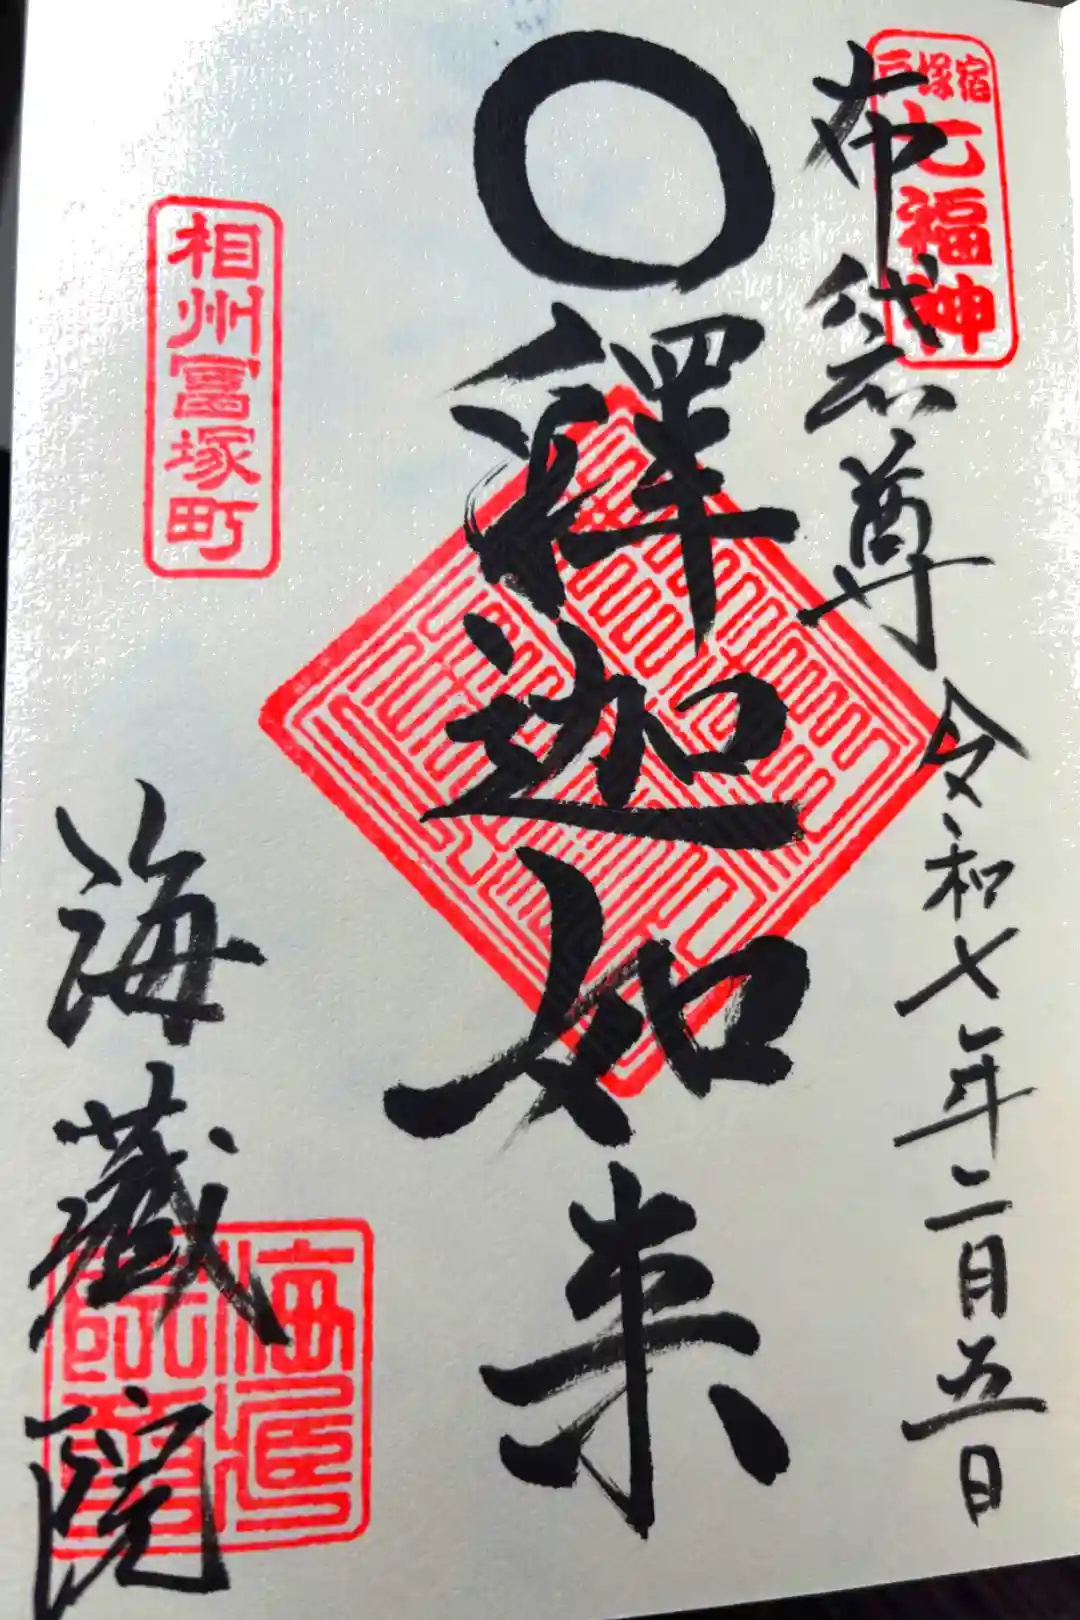 戸塚宿
七福神
布袋尊
令和七年二月五日
〇釋迦如来
相州冨塚町
海藏院